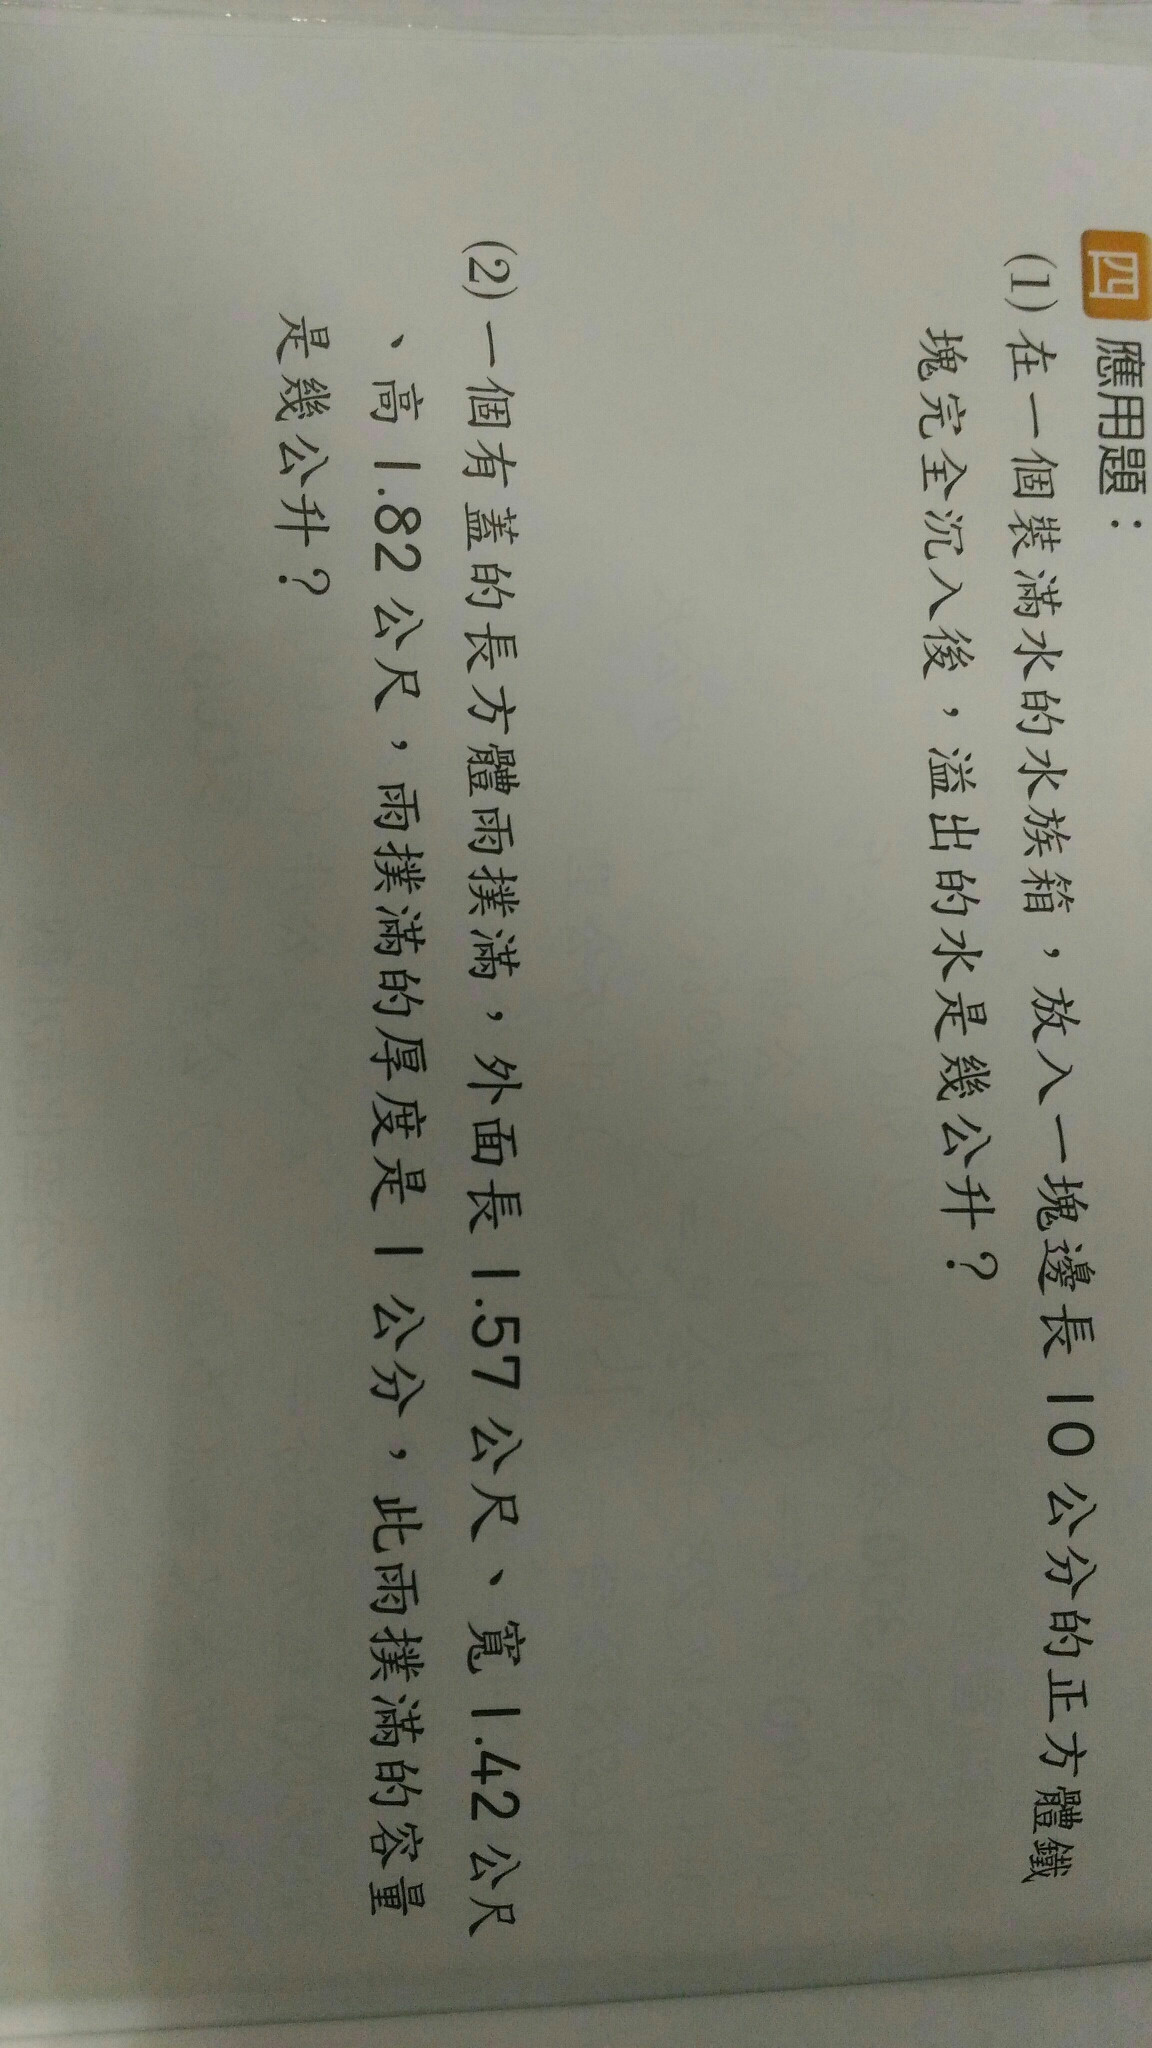 四 應用題：
(1) 在一個裝滿水的水族箱，放入一塊邊長 10 公分的正方體鐵
塊完全沉入後，溢出的水是幾公升？
(2) 一個有蓋的長方體雨撲滿，外面長 1.57 公尺、寬 1.42 公尺
、高 1.82 公尺，雨撲滿的厚度是 1 公分，此雨撲滿的容量
是幾公升？